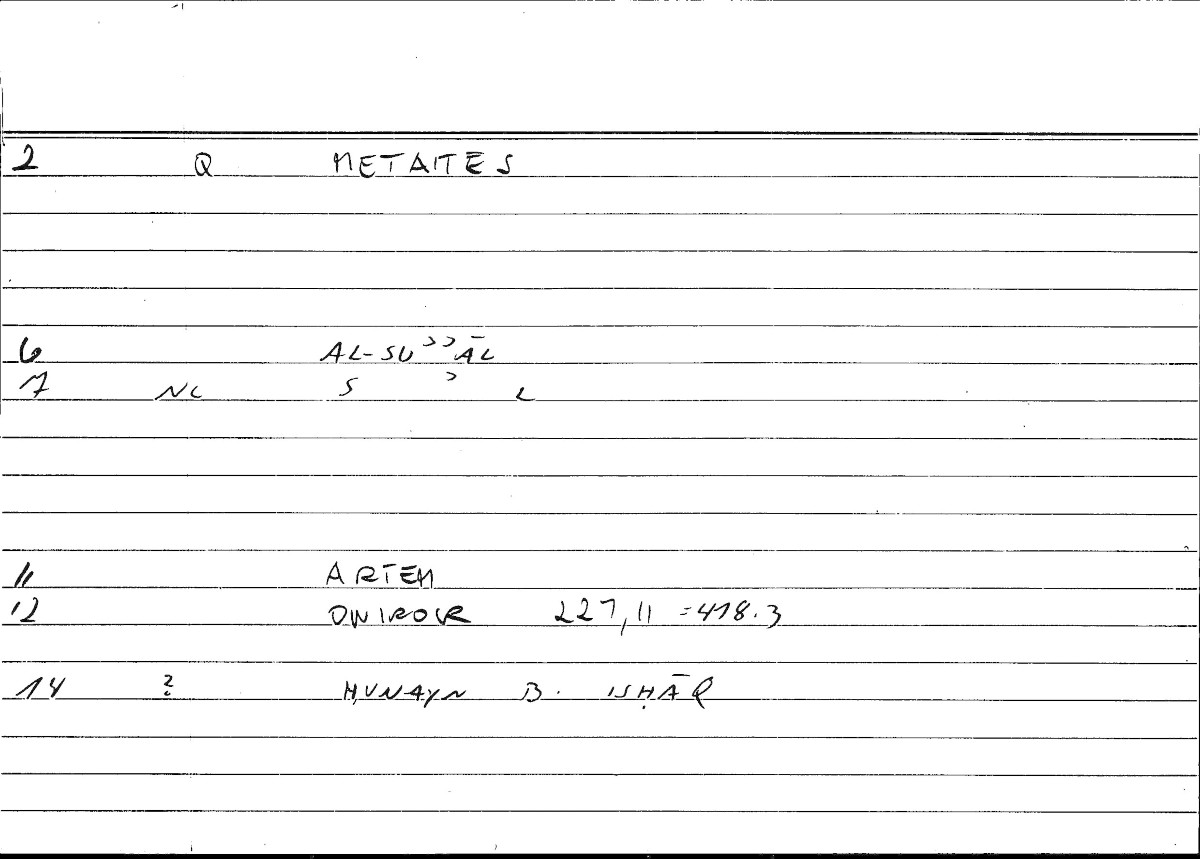 2 Q METAITES
6 AL-SUʾʾĀL
7 NC S ʾ L
11 ARTEM
12 ONIROCR 227,11 =418.3
14 ? ḤUNAYN B. ISḤĀQ